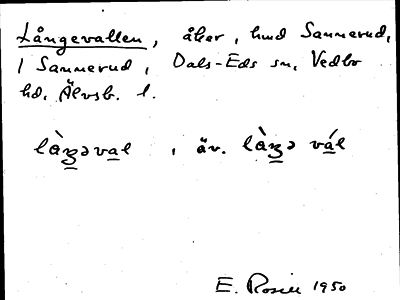 Långevallen, åker, hmd Sannerud,
1 Sannerud, Dals-Eds sn, Vedbo
hd, Älvsb. l.
là̱ʒəva̱l , äv. làʒ̱ə vál
E. Rosell 1950